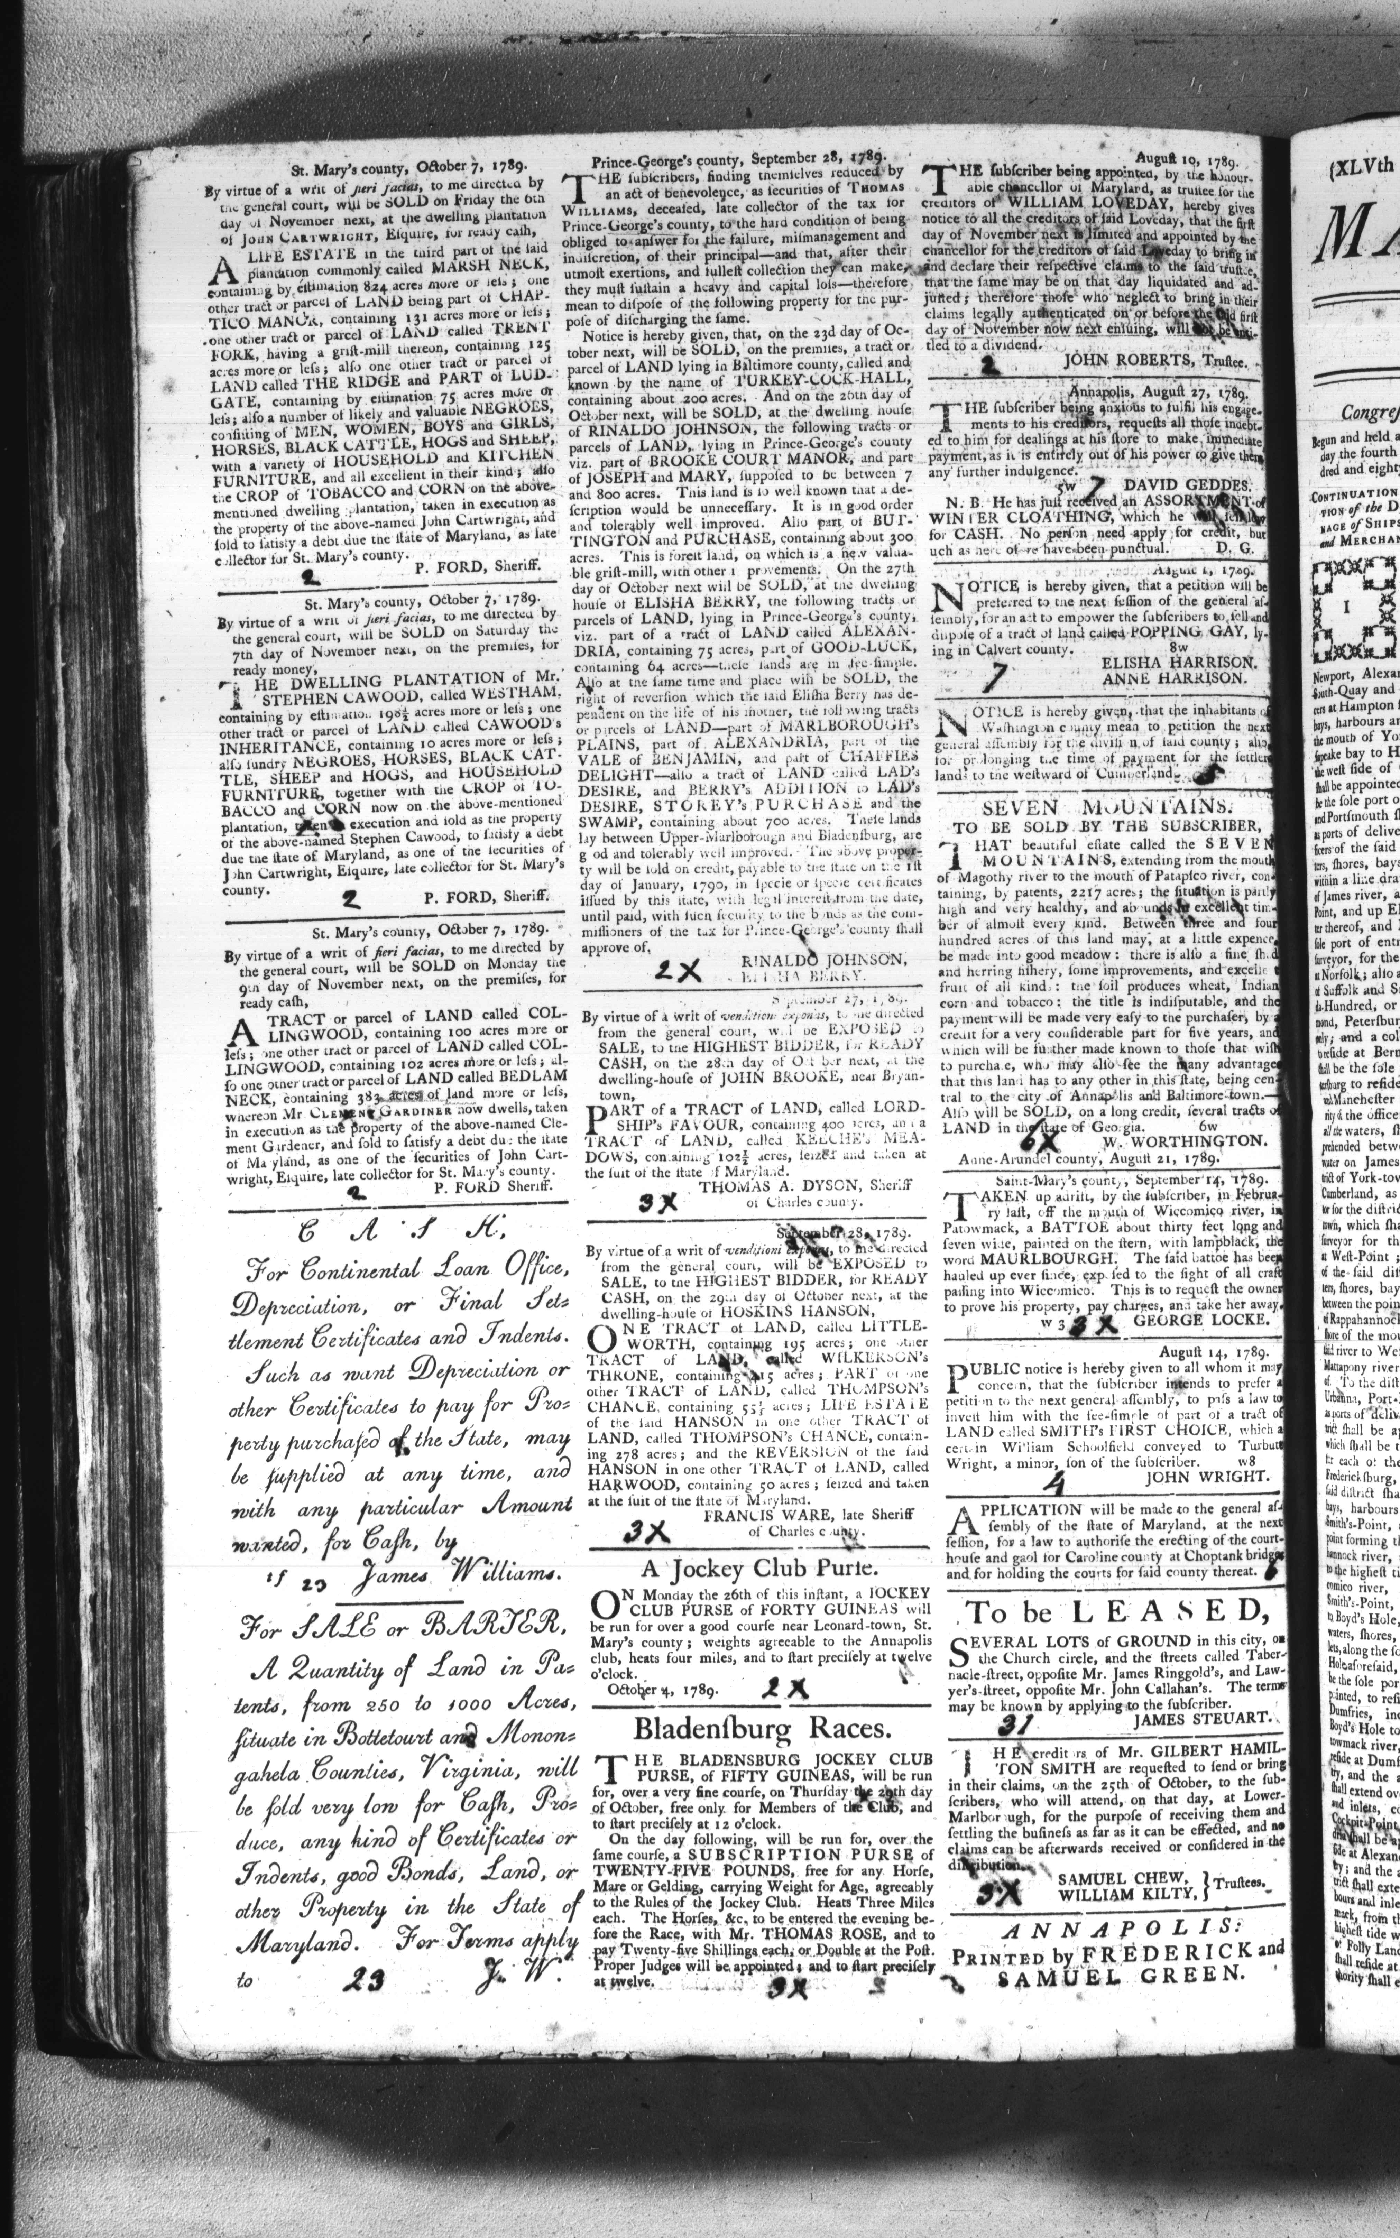 St. Mary's county, October 7, 1789.
By virtue of a writ of fieri facias, to me directed by
the general court, will be SOLD on Friday the 6th
day of November next, at the dwelling plantation
of JOHN CARTWRIGHT, Esquire, for ready cash,
A LIFE ESTATE in the third part of the said
plantation commonly called MARSH NECK,
containing by estimation 824 acres more or less; one
other tract or parcel of LAND being part of CHAP-
TICO MANOR, containing 131 acres more or less;
one other tract or parcel of LAND called TRENT
FORK, having a grist-mill thereon, containing 125
acres more or less; also one other tract or parcel of
LAND called THE RIDGE and PART of LUD-
GATE, containing by estimation 75 acres more or
less; also a number of likely and valuable NEGROES,
consisting of MEN, WOMEN, BOYS and GIRLS,
HORSES, BLACK CATTLE, HOGS and SHEEP,
with a variety of HOUSEHOLD and KITCHEN
FURNITURE, and all excellent in their kind; also
the CROP of TOBACCO and CORN on the above-
mentioned dwelling plantation, taken in execution as
the property of the above-named John Cartwright, and
sold to satisfy a debt due the state of Maryland, as late
collector for St. Mary's county.
2 P. FORD, Sheriff.
St. Mary's county, October 7, 1789.
By virtue of a writ of fieri facias, to me directed by
the general court, will be SOLD on Saturday the
7th day of November next, on the premises, for
ready money,
THE DWELLING PLANTATION of Mr.
STEPHEN CAWOOD, called WESTHAM,
containing by estimation 198½ acres more or less; one
other tract or parcel of LAND called CAWOOD's
INHERITANCE, containing 10 acres more or less;
also sundry NEGROES, HORSES, BLACK CAT-
TLE, SHEEP and HOGS, and HOUSEHOLD
FURNITURE, together with the CROP of TO-
BACCO and CORN now on the above-mentioned
plantation, taken in execution and sold as the property
of the above-named Stephen Cawood, to satisfy a debt
due the state of Maryland, as one of the securities of
John Cartwright, Esquire, late collector for St. Mary's
county.
2 P. FORD, Sheriff.
St. Mary's county, October 7, 1789.
By virtue of a writ of fieri facias, to me directed by
the general court, will be SOLD on Monday the
9th day of November next, on the premises, for
ready cash,
A TRACT or parcel of LAND called COL-
LINGWOOD, containing 100 acres more or
less; one other tract or parcel of LAND called COL-
LINGWOOD, containing 102 acres more or less; al-
so one other tract or parcel of LAND called BEDLAM
NECK, containing 383 acres of land more or less,
whereon Mr. CLEMENT GARDINER now dwells, taken
in execution as the property of the above-named Cle-
ment Gardener, and sold to satisfy a debt due the state
of Maryland, as one of the securities of John Cart-
wright, Esquire, late collector for St. Mary's county.
2 P. FORD Sheriff.
C A S H,
For Continental Loan Office,
Depreciation, or Final Set=
tlement Certificates and Indents.
Such as want Depreciation or
other Certificates to pay for Pro=
perty purchased of the State, may
be supplied at any time, and
with any particular Amount
wanted, for Cash, by
tf 23 James Williams.
For SALE or BARTER,
A Quantity of Land in Pa=
tents, from 250 to 1000 Acres,
situate in Bottetourt and Monon=
gahela Counties, Virginia, will
be sold very low for Cash, Pro=
duce, any kind of Certificates or
Indents, good Bonds, Land, or
other Property in the State of
Maryland. For Terms apply
to 23 J. W.
Prince-George's county, September 28, 1789.
THE subscribers, finding themselves reduced by
an act of benevolence, as securities of THOMAS
WILLIAMS, deceased, late collector of the tax for
Prince-George's county, to the hard condition of being
obliged to answer for the failure, mismanagement and
indiscretion, of their principal—and that, after their
utmost exertions, and fullest collection they can make,
they must sustain a heavy and capital loss—therefore
mean to dispose of the following property for the pur-
pose of discharging the same.
Notice is hereby given, that, on the 23d day of Oc-
tober next, will be SOLD, on the premises, a tract or
parcel of LAND lying in Baltimore county, called and
known by the name of TURKEY-COCK-HALL,
containing about 200 acres. And on the 26th day of
October next, will be SOLD, at the dwelling house
of RINALDO JOHNSON, the following tracts or
parcels of LAND, lying in Prince-George's county
viz. part of BROOKE COURT MANOR, and part
of JOSEPH and MARY, supposed to be between 7
and 800 acres. This land is so well known that a de-
scription would be unnecessary. It is in good order
and tolerably well improved. Also part of BUT-
TINGTON and PURCHASE, containing about 300
acres. This is forest land, on which is a new valua-
ble grist-mill, with other improvements. On the 27th
day of October next will be SOLD, at the dwelling
house of ELISHA BERRY, the following tracts or
parcels of LAND, lying in Prince-George's county,
viz. part of a tract of LAND called ALEXAN-
DRIA, containing 75 acres, part of GOOD-LUCK,
containing 64 acres—these lands are in fee-simple.
Also at the same time and place will be SOLD, the
right of reversion which the said Elisha Berry has de-
pendent on the life of his mother, the following tracts
or parcels of LAND—part of MARLBOROUGH's
PLAINS, part of ALEXANDRIA, part of the
VALE of BENJAMIN, and part of CHAFFIES
DELIGHT—also a tract of LAND called LAD's
DESIRE, and BERRY's ADDITION to LAD's
DESIRE, STOREY's PURCHASE and the
SWAMP, containing about 700 acres. These lands
lay between Upper-Marlborough and Bladensburg, are
good and tolerably well improved. The above proper-
ty will be sold on credit, payable to the state on the 1st
day of January, 1790, in specie or specie certificates
issued by this state, with legal interest from the date,
until paid, with such security to the bonds as the com-
missioners of the tax for Prince-George's county shall
approve of.
2X RINALDO JOHNSON,
ELISHA BERRY.
September 27, 1789.
By virtue of a writ of venditioni exponas, to me directed
from the general court, will be EXPOSED to
SALE, to the HIGHEST BIDDER, for READY
CASH, on the 28th day of October next, at the
dwelling-house of JOHN BROOKE, near Bryan-
town,
PART of a TRACT of LAND, called LORD-
SHIP's FAVOUR, containing 400 acres, and a
TRACT of LAND, called KEECHE's MEA-
DOWS, containing 102½ acres, seized and taken at
the suit of the state of Maryland.
THOMAS A. DYSON, Sheriff
3X of Charles county.
September 28, 1789.
By virtue of a writ of venditioni exponas, to me directed
from the general court, will be EXPOSED to
SALE, to the HIGHEST BIDDER, for READY
CASH, on the 29th day of October next, at the
dwelling-house of HOSKINS HANSON,
ONE TRACT of LAND, called LITTLE-
WORTH, containing 195 acres; one other
TRACT of LAND, called WILKERSON's
THRONE, containing 15 acres; PART of one
other TRACT of LAND, called THOMPSON's
CHANCE, containing 55½ acres; LIFE ESTATE
of the said HANSON in one other TRACT of
LAND, called THOMPSON's CHANCE, contain-
ing 278 acres; and the REVERSION of the said
HANSON in one other TRACT of LAND, called
HARWOOD, containing 50 acres; seized and taken
at the suit of the state of Maryland.
FRANCIS WARE, late Sheriff
3X of Charles county.
A Jockey Club Purse.
ON Monday the 26th of this instant, a JOCKEY
CLUB PURSE of FORTY GUINEAS will
be run for over a good course near Leonard-town, St.
Mary's county; weights agreeable to the Annapolis
club, heats four miles, and to start precisely at twelve
o'clock.
October 4, 1789. 2X
Bladensburg Races.
THE BLADENSBURG JOCKEY CLUB
PURSE, of FIFTY GUINEAS, will be run
for, over a very fine course, on Thursday the 29th day
of October, free only for Members of the Club, and
to start precisely at 12 o'clock.
On the day following, will be run for, over the
same course, a SUBSCRIPTION PURSE of
TWENTY-FIVE POUNDS, free for any Horse,
Mare or Gelding, carrying Weight for Age, agreeably
to the Rules of the Jockey Club. Heats Three Miles
each. The Horses, &c. to be entered the evening be-
fore the Race, with Mr. THOMAS ROSE, and to
pay Twenty-five Shillings each, or Double at the Post.
Proper Judges will be appointed; and to start precisely
at twelve. 3X
August 10, 1789.
THE subscriber being appointed, by the honour-
able chancellor of Maryland, as trustee for the
creditors of WILLIAM LOVEDAY, hereby gives
notice to all the creditors of said Loveday, that the first
day of November next is limited and appointed by the
chancellor for the creditors of said Loveday to bring in
and declare their respective claims to the said trustee,
that the same may be on that day liquidated and ad-
justed; therefore those who neglect to bring in their
claims legally authenticated on or before the said first
day of November now next ensuing, will not be enti-
tled to a dividend.
2 JOHN ROBERTS, Trustee.
Annapolis, August 27, 1789.
THE subscriber being anxious to fulfil his engage-
ments to his creditors, requests all those indebt-
ed to him for dealings at his store to make immediate
payment, as it is entirely out of his power to give them
any further indulgence.
5w 7 DAVID GEDDES.
N. B. He has just received an ASSORTMENT of
WINTER CLOATHING, which he will sell low
for CASH. No person need apply for credit, but
such as heretofore have been punctual. D. G.
August 1, 1789.
NOTICE is hereby given, that a petition will be
preferred to the next session of the general as-
sembly, for an act to empower the subscribers to sell and
dispose of a tract of land called POPPING GAY, ly-
ing in Calvert county. 8w
ELISHA HARRISON.
7 ANNE HARRISON.
NOTICE is hereby given, that the inhabitants of
Washington county mean to petition the next
general assembly for the division of said county; also
for prolonging the time of payment for the settlers
lands to the westward of Cumberland.
SEVEN MOUNTAINS.
TO BE SOLD BY THE SUBSCRIBER,
THAT beautiful estate called the SEVEN
MOUNTAINS, extending from the mouth
of Magothy river to the mouth of Patapsco river, con-
taining, by patents, 2217 acres; the situation is partly
high and very healthy, and abounds in excellent tim-
ber of almost every kind. Between three and four
hundred acres of this land may, at a little expence,
be made into good meadow: there is also a fine shad
and herring fishery, some improvements, and excellent
fruit of all kinds: the soil produces wheat, Indian
corn and tobacco: the title is indisputable, and the
payment will be made very easy to the purchaser, by a
credit for a very considerable part for five years, and
which will be further made known to those that wish
to purchase, who may also see the many advantages
that this land has to any other in this state, being cen-
tral to the city of Annapolis and Baltimore-town.—
Also will be SOLD, on a long credit, several tracts of
LAND in the state of Georgia. 6w
6X W. WORTHINGTON.
Anne-Arundel county, August 21, 1789.
Saint-Mary's county, September 14, 1789.
TAKEN up adrift, by the subscriber, in Februa-
ry last, off the mouth of Wiccomico river, in
Patowmack, a BATTOE about thirty feet long and
seven wide, painted on the stern, with lampblack, the
word MAURLBOURGH. The said battoe has been
hauled up ever since, exposed to the sight of all craft
passing into Wiccomico. This is to request the owner
to prove his property, pay charges, and take her away.
w 3 3X GEORGE LOCKE.
August 14, 1789.
PUBLIC notice is hereby given to all whom it may
concern, that the subscriber intends to prefer a
petition to the next general assembly, to pass a law to
invest him with the fee-simple of part of a tract of
LAND called SMITH's FIRST CHOICE, which a
certain William Schoolfield conveyed to Turbutt
Wright, a minor, son of the subscriber. w8
4 JOHN WRIGHT.
APPLICATION will be made to the general as-
sembly of the state of Maryland, at the next
session, for a law to authorise the erecting of the court-
house and gaol for Caroline county at Choptank bridge
and for holding the courts for said county thereat. 6
To be LEASED,
SEVERAL LOTS of GROUND in this city, on
the Church circle, and the streets called Taber-
nacle-street, opposite Mr. James Ringgold's, and Law-
yer's-street, opposite Mr. John Callahan's. The terms
may be known by applying to the subscriber.
31 JAMES STEUART.
THE creditors of Mr. GILBERT HAMIL-
TON SMITH are requested to send or bring
in their claims, on the 25th of October, to the sub-
scribers, who will attend, on that day, at Lower-
Marlborough, for the purpose of receiving them and
settling the business as far as it can be effected, and no
claims can be afterwards received or considered in the
distribution.
3X SAMUEL CHEW, } Trustees.
WILLIAM KILTY, }
ANNAPOLIS:
PRINTED by FREDERICK and
SAMUEL GREEN.
(XLVth
MA
Congres
Begun and held a
day the fourth
dred and eighty
CONTINUATION
TION of the D
NAGE of SHIPS
and MERCHAN
I
Newport, Alexan
South-Quay and